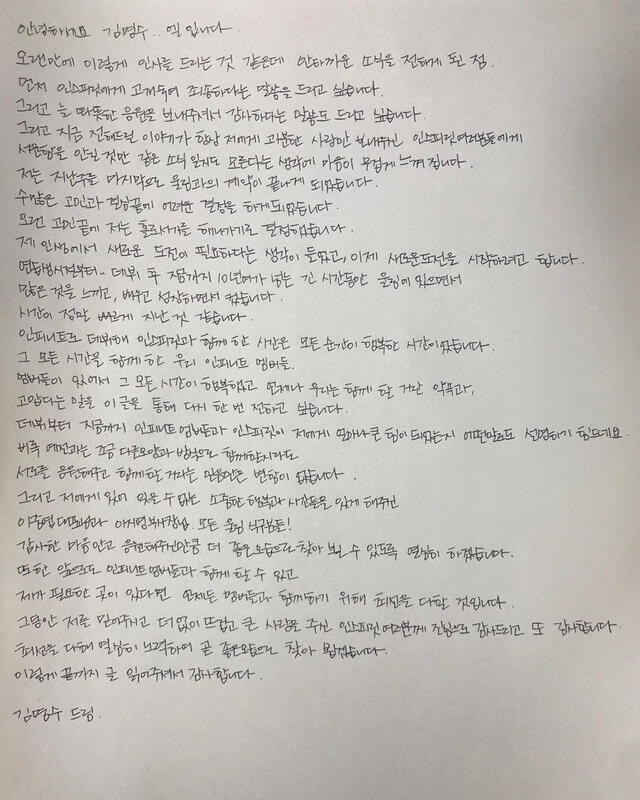 안녕하세요 김명수.. 엘 입니다.
오랜만에 이렇게 인사를 드리는 것 같은데 안타까운 소식을 전하게 된 점.
먼저 인스피릿에게 고개숙여 죄송하다는 말씀을 드리고 싶습니다.
그리고 늘 따뜻한 응원을 보내주셔서 감사하다는 말씀도 드리고 싶습니다.
그리고 지금 전해드릴 이야기가 항상 저에게 과분한 사랑만 보내주신 인스피릿여러분들에게
서운함을 안길 것만 같은 소식 일지도 모른다는 생각에 마음이 무겁게 느껴집니다.
저는 지난주를 마지막으로 울림과의 계약이 끝나게 되었습니다.
수많은 고민과 결심끝에 어려운 결정을 하게되었습니다.
오랜 고민끝에 저는 홀로서기를 해나가기로 결정했습니다.
제 인생에서 새로운 도전이 필요하다는 생각이 들었고, 이제 새로운도전을 시작하려고 합니다.
연습생시절부터.. 데뷔 후 지금까지 10년여가 넘는 긴 시간동안 울림에 있으면서
많은 것을 느끼고, 배우고 성장하면서 컸습니다.
시간이 정말 빠르게 지난 것 같습니다.
인피니트로 데뷔해 인스피릿과 함께 한 시간은 모든 순간이 행복한 시간이었습니다.
그 모든 시간을 함께 한 우리 인피니트 멤버들.
멤버들이 있어서 그 모든 시간이 행복했고 언제나 우리는 함께 할 거란 약속과,
고맙다는 말을 이 글을 통해 다시 한 번 전하고 싶습니다.
데뷔부터 지금까지 인피니트 멤버들과 인스피릿이 저에게 얼마나 큰 힘이 되었는지 어떤말로도 설명하기 힘드네요.
비록 예전과는 조금 다른모습과 방식으로 함께할지라도
서로를 응원해주고 함께할 거라는 믿음만은 변함이 없습니다.
그리고 저에게 있어 잊을 수 없는 소중한 행복과 시간들을 있게 해주신
이중엽대표님과 이지영부사장님. 모든 울림 식구분들!
감사한 마음안고 응원해주신만큼 더 좋은모습으로 찾아 뵐 수 있도록 열심히 하겠습니다.
또한 앞으로도 인피니트멤버들과 함께 할 수 있고
제가 필요한 곳이 있다면 언제든 멤버들과 함께하기 위해 최선을 다할 것입니다.
그동안 저를 믿어주시고 더 없이 뜨겁고 큰 사랑을 주신 인스피릿 여러분께 진심으로 감사드리고 또 감사합니다.
최선을 다해 열심히 노력하여 곧 좋은모습으로 찾아 뵙겠습니다.
이렇게 끝까지 글 읽어주셔서 감사합니다.
김명수 드림.